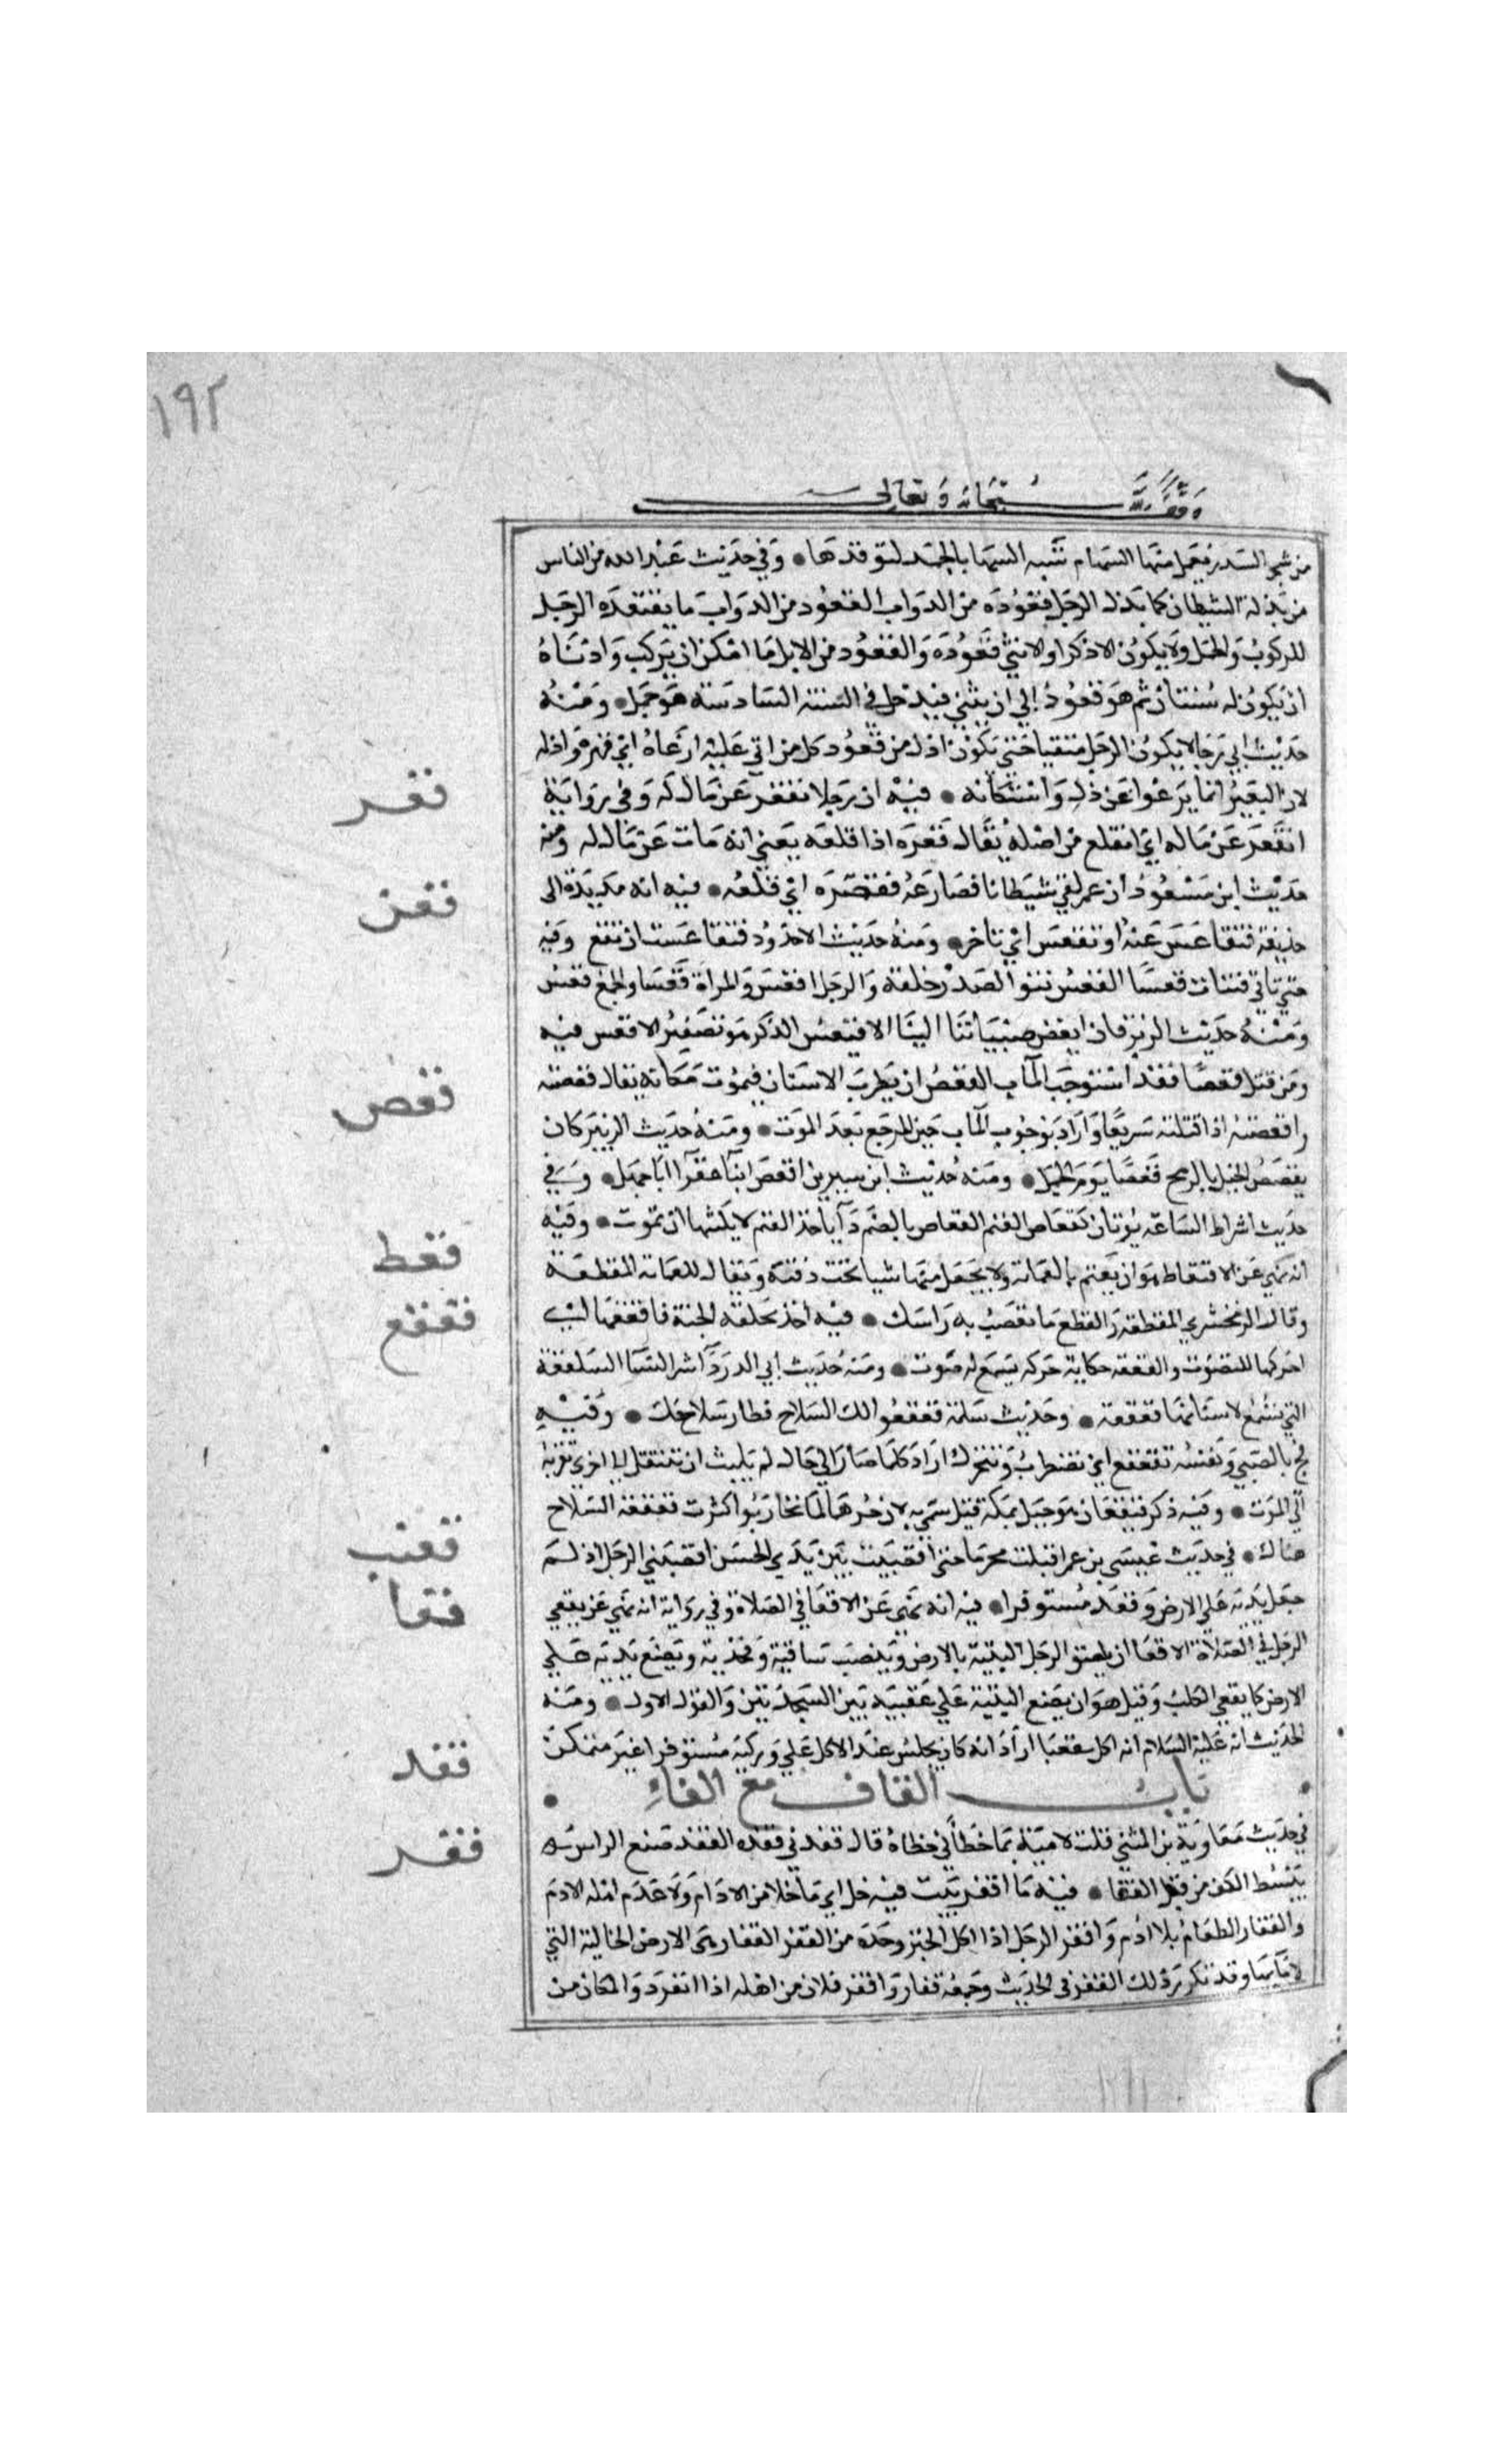 ١٩٢
وقف لله سبحانه وتعالى
من شجر السدر يعمل منها السهام شبه السهما بالجمد لتوقدها • وفي حديث عبد الله من الناس
من يذله الشيطان كما يذل الرجل قعوده من الدواب القعود من الدواب ما يقتعده الرجل
للركوب والحمل ولا يكون الا ذكرا والانثى قعوده والقعود من الابل ما امكن ان يركب وادناه
ان يكون له سنتان ثم هو قعود إلى ان يثني فيدخل في السنة السادسة هو جمل • ومنه
حديث ابي رجا لا يكون الرجل متقيا حتى يكون اذل من قعود كل من اتي عليه ارغاه اي قهره واذله
لان البعير انما يرغوا عن ذل واستكانه • فيه ان رجلا تقعر عن مال له وفي رواية
انقعر عن ماله اي انقلع من اصله يقال قعره اذا قلعه يعني انه مات عن مال له ومنه
حديث ابن مسعود ان عمر لقي شيطانا فصارعه فقعره اي قلعه • فيه انه مد يده الى
حذيفة فتقاعس عنه او تقعس اي تاخر • ومنه حديث الاخدود فتقاعست ان تقع وفيه
حتى تاتي فتيات قعسا القعس نتو الصدر خلقه والرجل اقعس والمراة قعسا والجمع قعس
ومنه حديث الزبرقان ابغض صبياننا الينا الاقيعس الذكر هو تصغير الاقعس فيه
ومن قتل قعصا فقد استوجب المآب القعص ان يضرب الانسان فيموت مكانه يقال قعصته
واقعصته اذا قتلته سريعا واراد بوجوب المآب حين المرجع بعد الموت • ومنه حديث الزبير كان
يقعص الخيل بالرمح قعصا يوم الجمل • ومنه حديث ابن سيرين اقعص ابنا عفرا ابا جهل • وفي
حديث اشراط الساعه موتان كقعاص الغنم القعاص بالضم دآ ياخذ الغنم لا يلبثها ان تموت • وفيه
انه نهي عن الاقتعاط هو ان يعتم بالعمامه ولا يجعل منها شيا تحت ذقنه ويقال للعمامه المقطعة
وقال الزمخشري المقطعة والمقطع ما تعصب به راسك • فيه اخذ بحلقه الجنة فاقعقعها اي
احركها للتصوت والقعقعه حكاية حركه يسمع له صوت • ومنه حديث أبي الدردآ شر النسا السلفعة
التي تسمع لاسنانها قعقعة • وحديث سلمة فقعقعوا لك السلاح فطار سلاحك • وفيه
فجئ بالصبي ونفسه تقعقع اي تضطرب وتتحرك اراد كلما صار الى حال لم يلبث ان تنتقل الى اخري تقربه
الى الموت • وفيه ذكر قعيقعان هو جبل بمكة قيل سمي به لان جرهما لما تحاربوا كثرت قعقعة السلاح
هناك • في حديث عيسى بن عمر اقبلت مجرمزا حتى اقعنبيت بين يدي الحسن اقعنبى الرجل اذا
جعل يديه علي الارض وقعد مستوفزا • فيه انه نهي عن الاقعا في الصلاة وفي رواية انه نهي عن يقعي
الرجل في الصلاة الاقعا ان يلصق الرجل اليتيه بالارض وينصب ساقيه وفخذيه ويضع يديه علي
الارض كما يقعي الكلب وقيل هو ان يضع اليتيه علي عقبيه بين السجدتين والقول الاول • ومنه
الحديث انه عليه السلام انه اكل مقعيا اراد انه كان يجلس عند الاكل علي وركيه مستوفزا غير متمكن
باب القاف مع الفاء
في حديث معاوية بن المثني قلت لامية بما خطأني خطاة قال قفدني قفده القفد صفع الراس
ببسط الكف من قبل القفا • فيه ما اقفر بيت فيه خل اي ما خلا من الادام ولا عدم اهله الادم
والقفار الطعام بلا ادم واقفر الرجل اذا اكل الخبز وحده من القفر القفار وهي الارض الخالية التي
لا ما بها وقد تكرر ذلك القفر في الحديث وجمعه قفار واقفر فلان من اهله اذا انفرد والمكان من
قعر
قعس
قعص
قعط
قعقع
قعنب
قعا
قفد
قفر